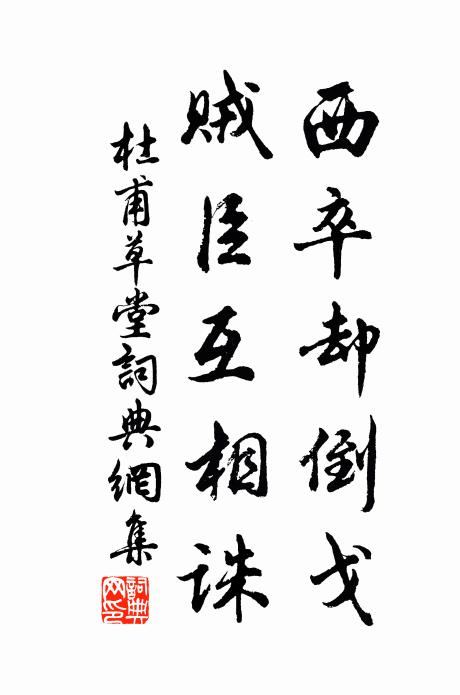 西卒却倒戈
賊臣互相誅
杜甫草堂詞典網集
詞典網印